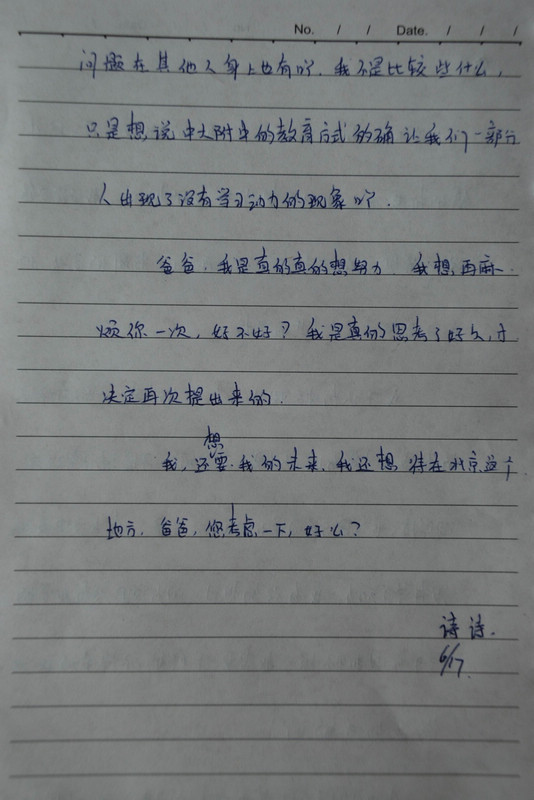 No. / / Date. / / /
问题在其他人身上也有的。我不是比较些什么，
只是想说中大附中的教育方式的确让我们一部分
人出现了没有学习动力的现象的。
爸爸，我是真的真的想努力 我想再麻
烦你一次，好不好？我是真的思考了好久，才
决定再次提出来的。
我，还想要我的未来，我还想待在北京这个
地方，爸爸，您考虑一下，好么？
诗诗.
6/17.